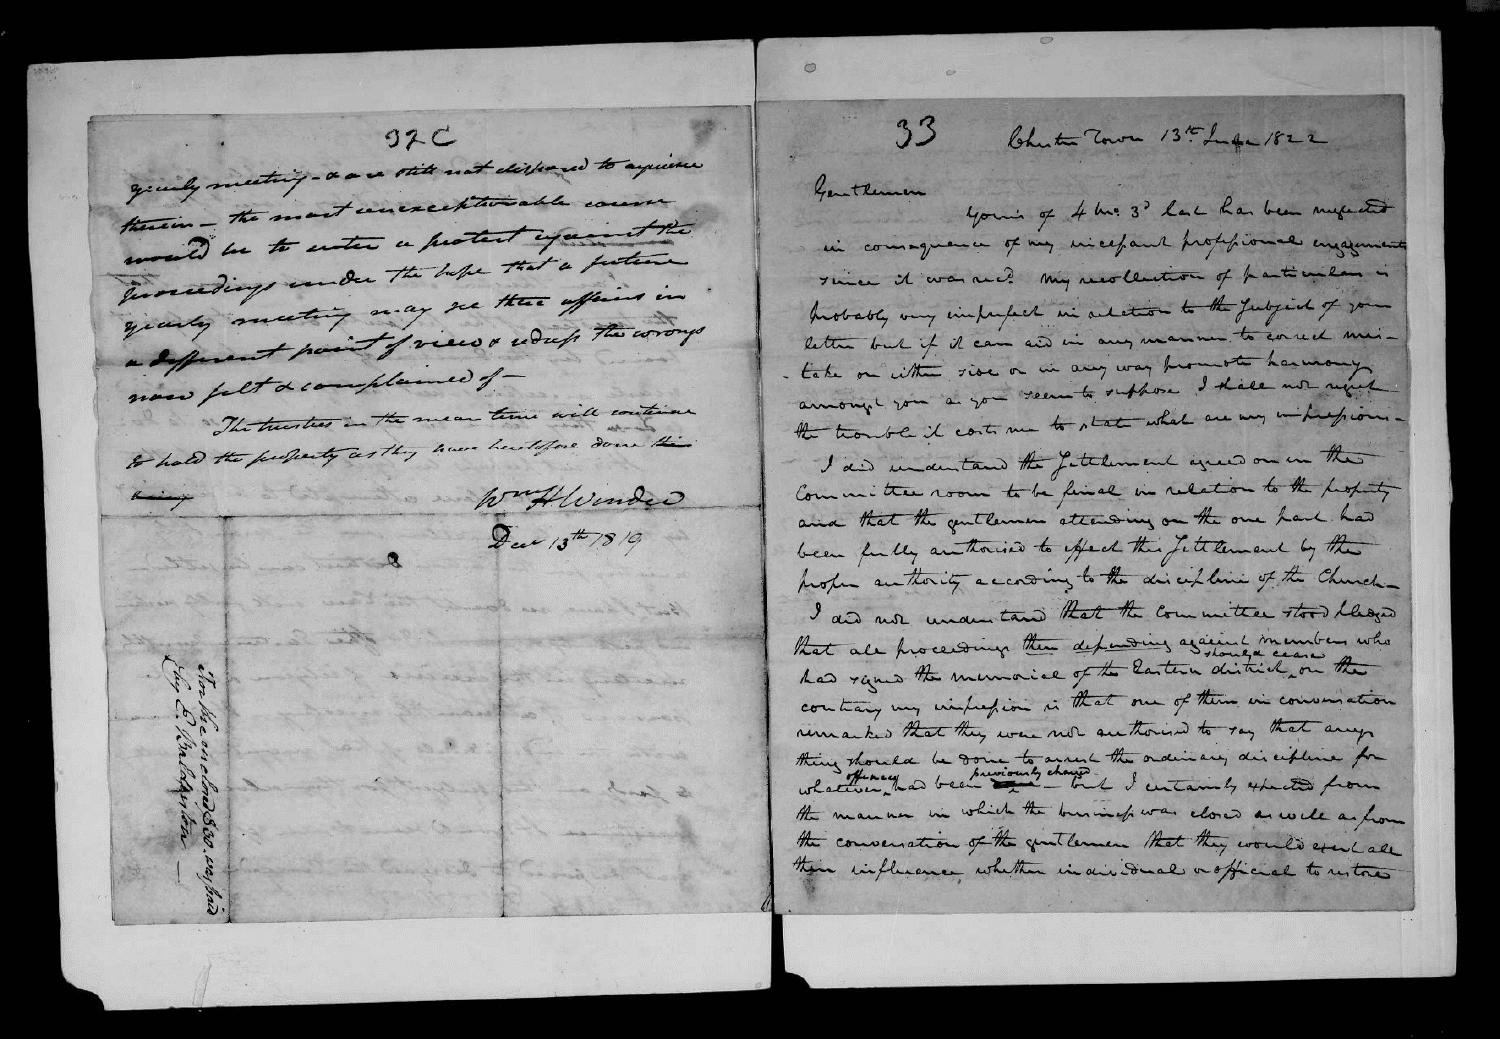 32C
yearly meeting - & are still not disposed to acquiesce
therein - the most unexceptionable course
would be to enter a protest against the
proceedings under the hope that a future
yearly meeting may see these affairs in
a different point of view & redress the wrongs
now felt & complained of -
The trustees in the mean time will continue
to hold the property as they have heretofore done
Wm H Winder
Decr 13th 1819
For the inclosed $00. was paid
by E. Balderston -
33
Chester Town 13th June 1822
Gentlemen
Yours of 4 Mo. 3d last has been neglected
in consequence of my incessant professional engagements
since it was recd. My recollection of particulars is
probably very imperfect in relation to the subject of your
letter but if it can aid in any manner to correct mis-
take on either side or in any way promote harmony
amongst you as you seem to suppose I shall not regret
the trouble it costs me to state what are my impressions -
I did understand the Settlement agreed on in the
Committee room to be final in relation to the property
and that the gentlemen attending on the one part had
been fully authorised to effect this Settlement by the
proper authority according to the discipline of the Church -
I did not understand that the Committee stood pledged
that all proceedings then depending against members who
had signed the memorial of the Eastern district should cease, on the
contrary my impression is that one of them in conversation
remarked that they were not authorised to say that any
thing should be done to arrest the ordinary discipline for
whatever offences had been previously charged - but I certainly expected from
the manner in which the business was closed as well as from
the conversation of the gentlemen that they would exert all
their influence, whether individual or official to restore